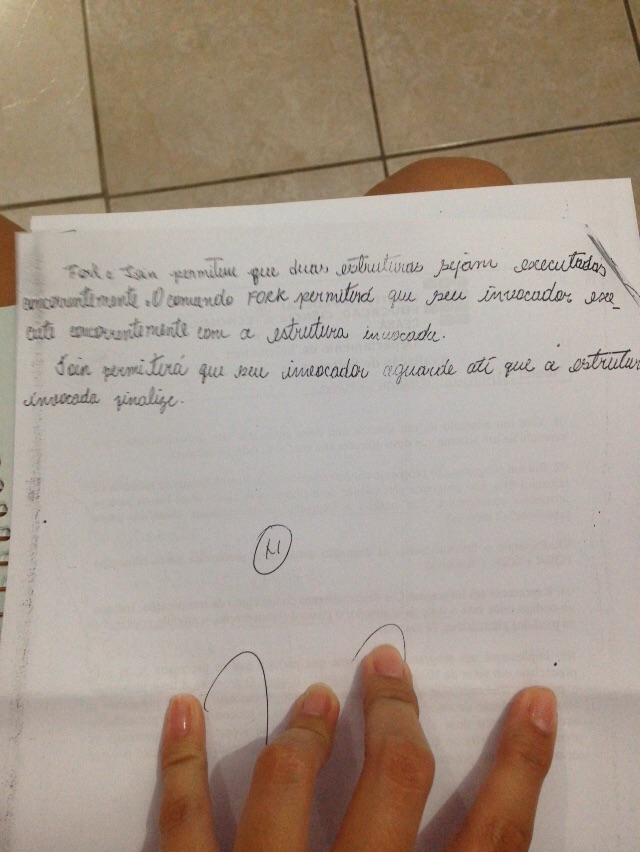 Fork e Join permitem que duas estruturas sejam executadas
concorrentemente. O comando FORK permitirá que seu invocador exe-
cute concorrentemente com a estrutura invocada.
Join permitirá que seu invocador aguarde até que a estrutur
invocada finalize.